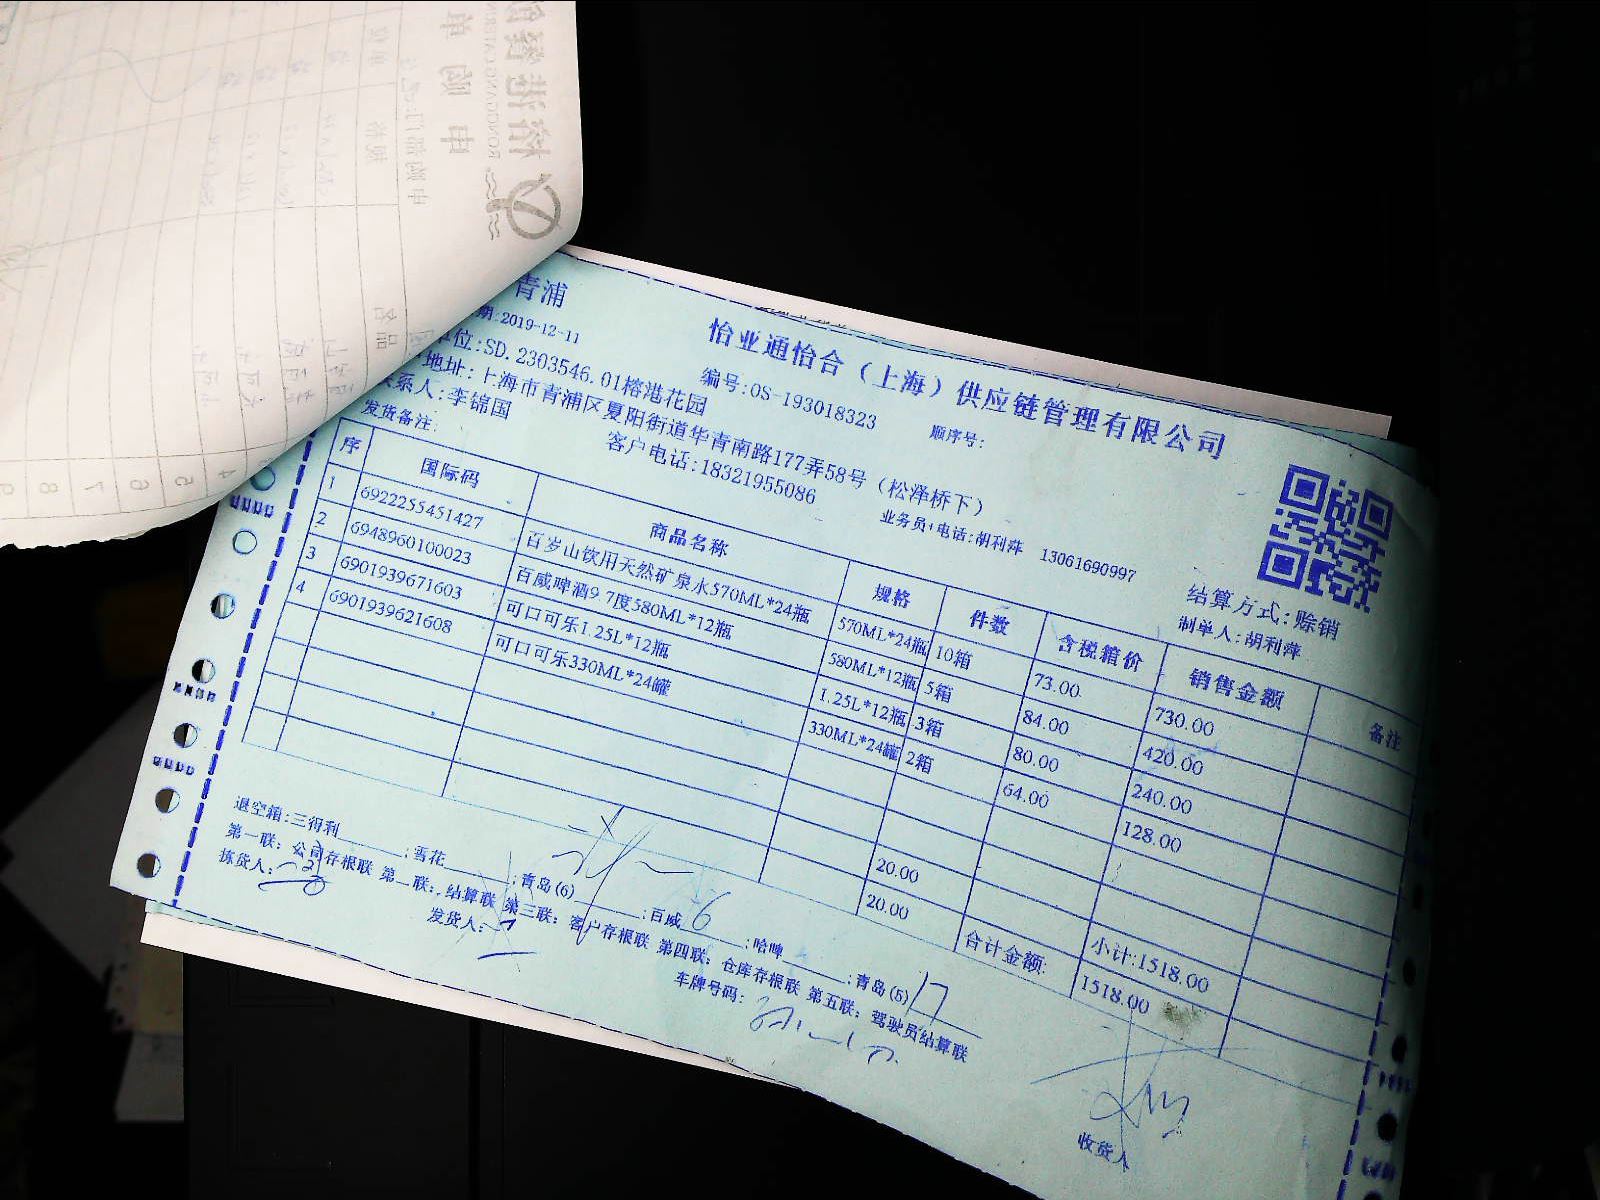 青浦
怡亚通怡合（上海）供应链管理有限公司
期:2019-12-11
编号:OS-193018323
顺序号:
位:SD.2303546.01榕港花园
地址:上海市青浦区夏阳街道华青南路177弄58号（松泽桥下）
系人:李锦国
客户电话:18321955086
业务员+电话:胡利萍 13061690997
结算方式:赊销
发货备注:
制单人:胡利萍
序 国际码 商品名称 规格 件数 含税箱价 销售金额 备注
1 6922255451427 百岁山饮用天然矿泉水570ML*24瓶 570ML*24瓶 10箱 73.00 730.00
2 6948960100023 百威啤酒9.7度580ML*12瓶 580ML*12瓶 5箱 84.00 420.00
3 6901939671603 可口可乐1.25L*12瓶 1.25L*12瓶 3箱 80.00 240.00
4 6901939621608 可口可乐330ML*24罐 330ML*24罐 2箱 64.00 128.00
20.00 小计:1518.00
20.00 合计金额: 1518.00
退空箱:三得利 ;雪花 ;青岛(6) ;百威 6 ;哈啤 ;青岛(5) 17
第一联: 公司存根联 第一联: 结算联 第三联: 客户存根联 第四联: 仓库存根联 第五联: 驾驶员结算联
拣货人:
发货人:
车牌号码:
收货人